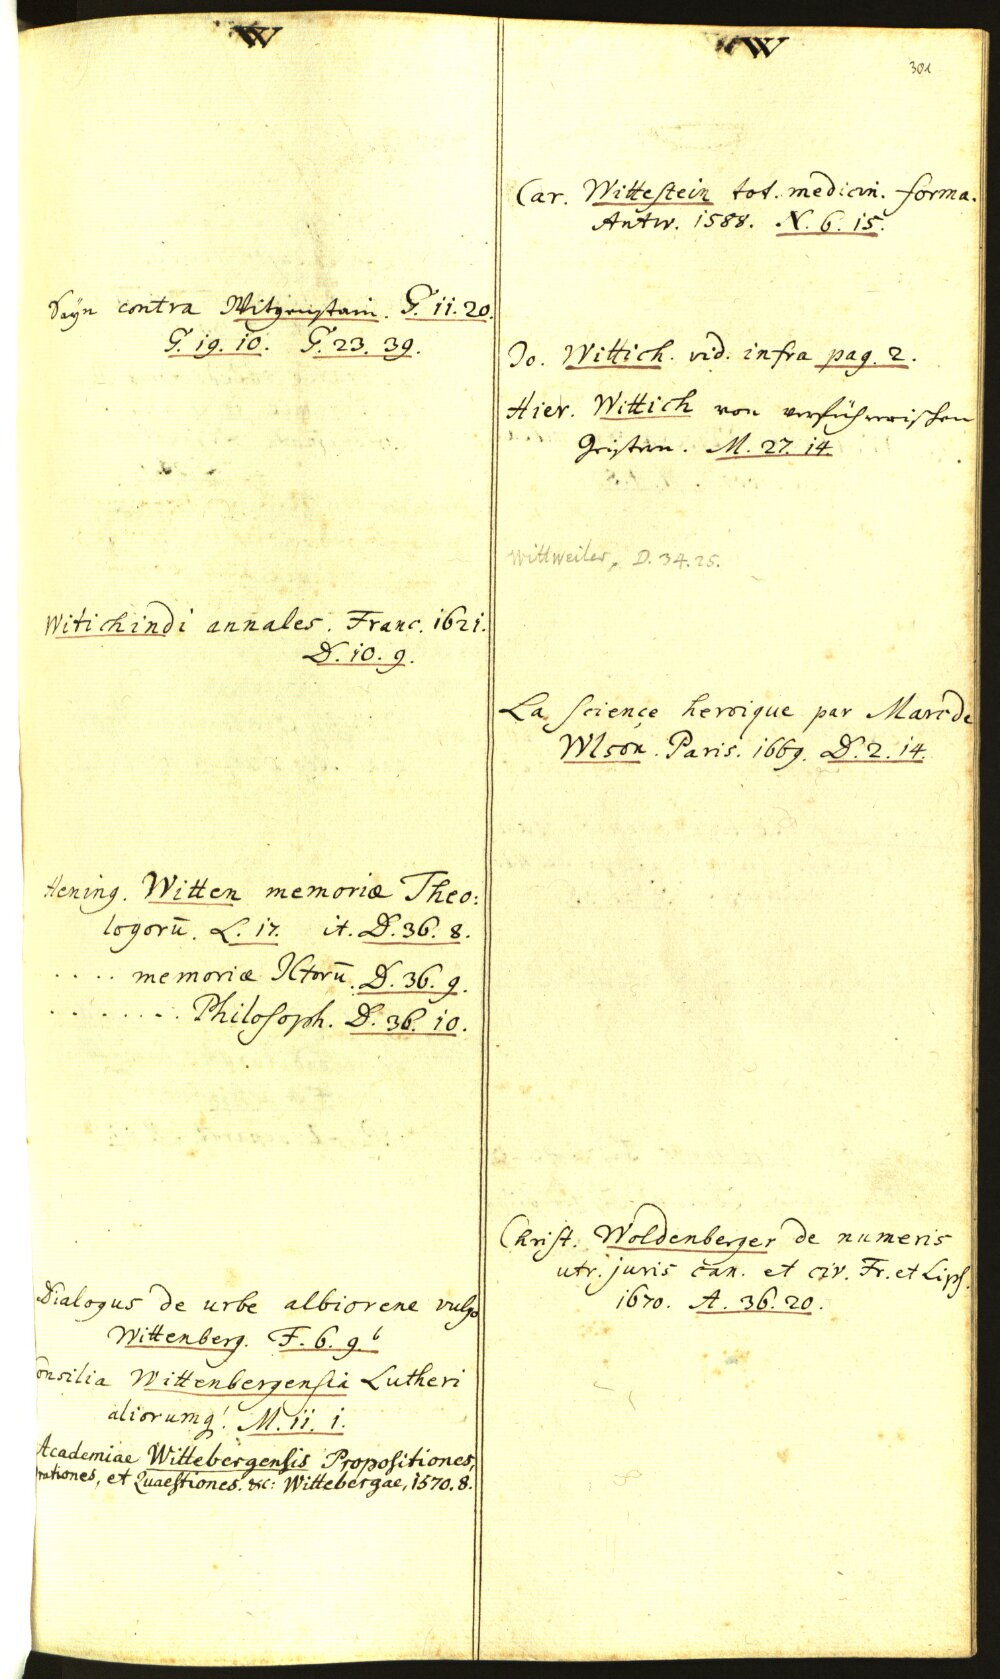 W
Sayn contra Witgenstain. G. 11. 20.
G. 19. 10. G. 23. 39.
Witichindi annales. Franc. 1621.
D. 10. 9.
Hening. Witten memoriæ Theo:
logorū. L. 17. it. D. 36. 8.
.... memoriæ ICtorū. D. 36. 9.
....... Philosoph. D. 36. 10.
Dialogus de urbe albiorene vulgo
Wittenberg. F. 6. 9.b
Consilia Wittenbergensia Lutheri
aliorumq! M. 11. 1.
Academiae Wittebergensis Propositiones,
Orationes, et Quaestiones. &c: Wittebergae, 1570. 8.
W
301
Car. Wittestein tot. medicin. forma.
Antw. 1588. N. 6. 15.
Jo. Wittich. vid. infra pag. 2.
Hier. Wittich von verführerischen
Geistern. M. 27. 14.
Wittweiler, D. 34. 25.
La science heroique par Marc de
Wlson. Paris. 1669. D. 2. 14.
Christ. Woldenberger de numeris
utr. juris can. et civ. Fr. et Lips.
1670. A. 36. 20.